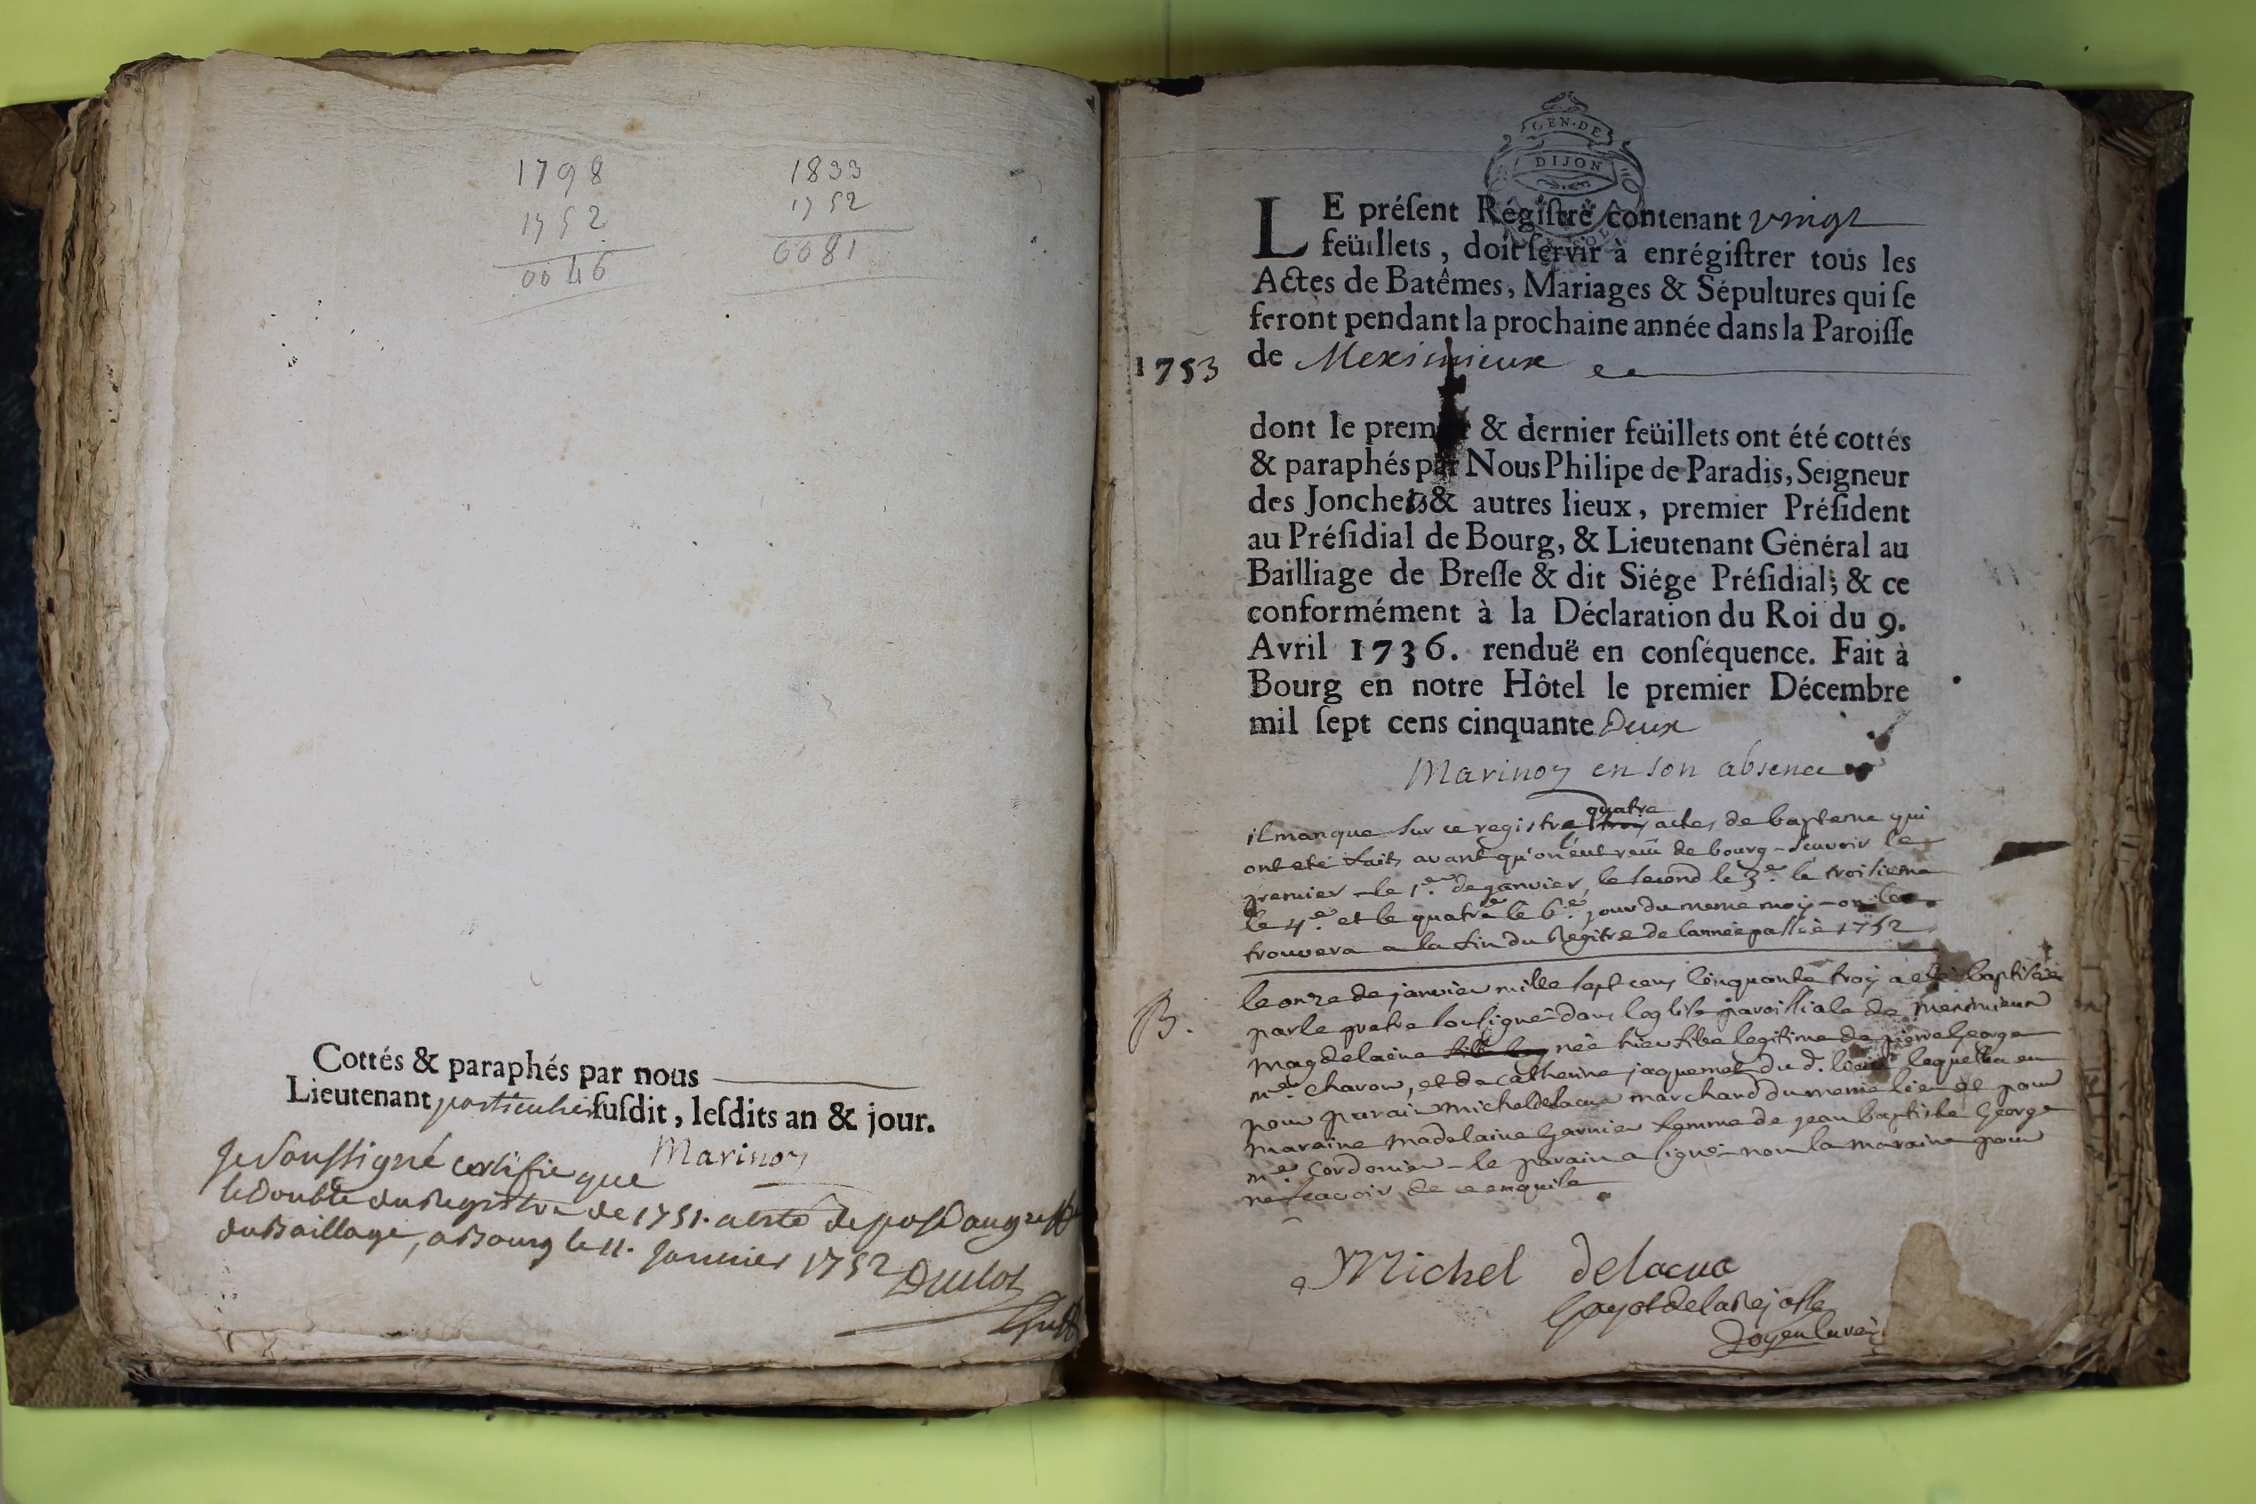 1798
1752
0046
1833
1752
0081
Cottés & paraphés par nous
Lieutenant particulier susdit, lesdits an & jour.
Marinon
Je soussigné certifie que
le double du Registre de 1751. a esté deposé au greffe
du Baillage, a Bourg le 11. Janvier 1752
GEN·DE
DIJON
LE présent Régistre contenant vingt
feüillets, doit servir à enrégistrer tous les
Actes de Batêmes, Mariages & Sépultures qui se
feront pendant la prochaine année dans la Paroisse
1753
de Meximieux
dont le premier & dernier feüillets ont été cottés
& paraphés par Nous Philipe de Paradis, Seigneur
des Jonchets & autres lieux, premier Président
au Présidial de Bourg, & Lieutenant Général au
Bailliage de Bresse & dit Siége Présidial; & ce
conformément à la Déclaration du Roi du 9.
Avril 1736. renduë en conséquence. Fait à
Bourg en notre Hôtel le premier Décembre
mil sept cens cinquante Deux
Marinon en son absence
il manque sur ce registre quatre actes de bapteme qui
ont eté faits avant qu'on l'eut reçû de bourg - sçavoir le
premier le 1er de janvier, le second le 3e le troisieme
le 4e et le quatre le 6e jour du meme moys on les
trouvera a la fin du Regitre de l'année passée 1752
B.
le onze de janvier mille sept cens cinquante troy a eté baptisée
par le pretre soussigné dans l'eglise paroissiale de meximieux
magdelaine née hier fille legitime de pierre George
me charon, et de catherine jaquemet du d. lieu lequel a eu
pour parain michel delacua marchand du meme lieu et pour
maraine madelaine Garnier femme de jean baptiste George
me Cordonier - le parain a signé non la maraine pour
ne sçavoir de ce enquise
Michel delacua